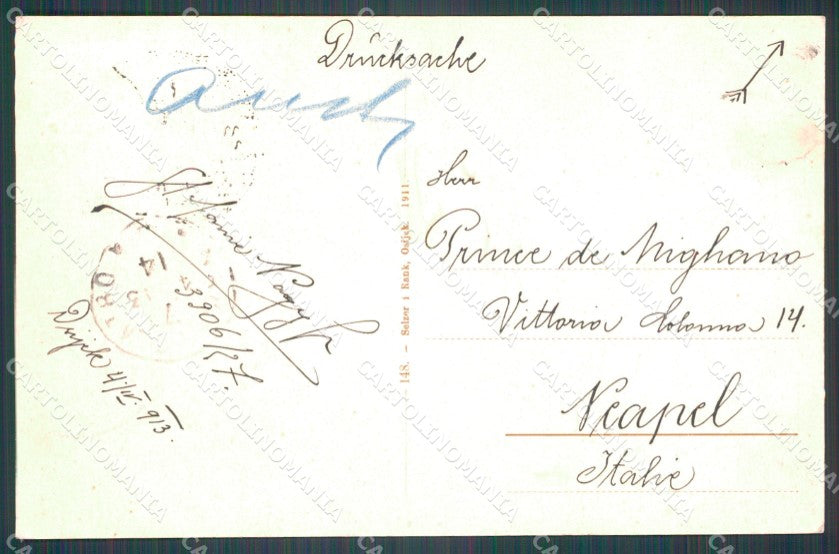 Drucksache
Herr
Prince de Mighano
Vittoria Colonna 14.
Neapel
Italie
148. – Selzer i Rank, Osijek. 1911.
Nagy
3906/27.
4/IV. 913.
CARTOLINOMANIA